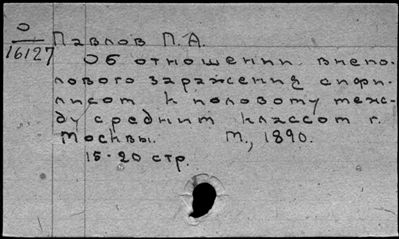 О
16127
Павлов П. А.
Об отношении внепо-
лового заражения сифи-
лисом к половому меж-
ду средним классом г.
Москвы. М., 1890.
15-20 стр.